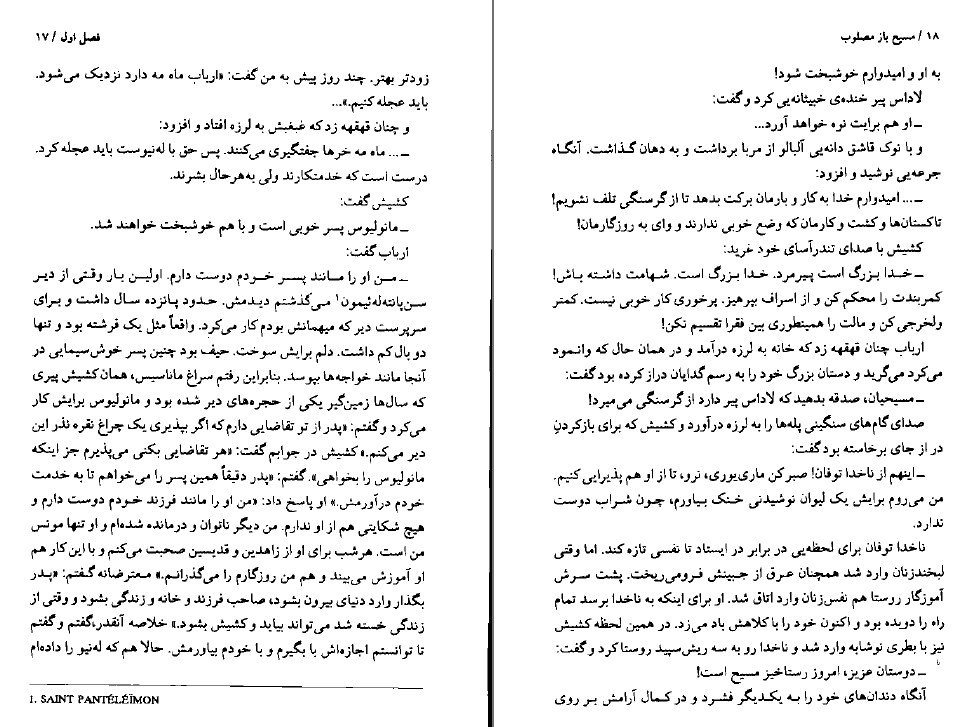 فصل اول / ۱۷
زودتر بهتر. چند روز پیش به من گفت: «ارباب ماه مه دارد نزدیک می‌شود.
باید عجله کنیم.»...
و چنان قهقهه زد که غبغبش به لرزه افتاد و افزود:
ــ ... ماه مه خرها جفتگیری می‌کنند. پس حق با له‌نیوست باید عجله کرد.
درست است که خدمتکارند ولی به‌هرحال بشرند.
کشیش گفت:
ــ مانولیوس پسر خوبی است و با هم خوشبخت خواهند شد.
ارباب گفت:
ــ من او را مانند پسر خودم دوست دارم. اولین بار وقتی از دیر
سن‌پانته‌له‌ئیمون۱ می‌گذشتم دیدمش. حدود پانزده سال داشت و برای
سرپرست دیر که میهمانش بودم کار می‌کرد. واقعاً مثل یک فرشته بود و تنها
دو بال کم داشت. دلم برایش سوخت. حیف بود چنین پسر خوش‌سیمایی در
آنجا مانند خواجه‌ها بپوسد. بنابراین رفتم سراغ ماناسیس، همان کشیش پیری
که سال‌ها زمین‌گیر یکی از حجره‌های دیر شده بود و مانولیوس برایش کار
می‌کرد و گفتم: «پدر از تو تقاضایی دارم که اگر بپذیری یک چراغ نقره نذر این
دیر می‌کنم.» کشیش در جوابم گفت: «هر تقاضایی بکنی می‌پذیرم جز اینکه
مانولیوس را بخواهی.» گفتم: «پدر دقیقاً همین پسر را می‌خواهم تا به خدمت
خودم درآورمش.» او پاسخ داد: «من او را مانند فرزند خودم دوست دارم و
هیچ شکایتی هم از او ندارم. من دیگر ناتوان و درمانده شده‌ام و او تنها مونس
من است. هرشب برای او از زاهدین و قدیسین صحبت می‌کنم و با این کار هم
او آموزش می‌بیند و هم من روزگارم را می‌گذرانم.» معترضانه گفتم: «پدر
بگذار وارد دنیای بیرون بشود، صاحب فرزند و خانه و زندگی بشود و وقتی از
زندگی خسته شد می‌تواند بیاید و کشیش بشود.» خلاصه آنقدر،گفتم و گفتم
تا توانستم اجازه‌اش با بگیرم و با خودم بیاورمش. حالا هم که له‌نیو را داده‌ام
1. SAINT PANTÉLÉÏMON
۱۸ / مسیح باز مصلوب
به او و امیدوارم خوشبخت شود!
لاداس پیر خنده‌ی خبیثانه‌یی کرد و گفت:
ــ او هم برایت نوه خواهد آورد...
و با نوک قاشق دانه‌یی آلبالو از مربا برداشت و به دهان گذاشت. آنگاه
جرعه‌یی نوشید و افزود:
ــ ... امیدوارم خدا به کار و بارمان برکت بدهد تا از گرسنگی تلف نشویم!
تاکستان‌ها و کشت و کارمان که وضع خوبی ندارند و وای به روزگارمان!
کشیش با صدای تندرآسای خود غرید:
ــ خدا بزرگ است پیرمرد. خدا بزرگ است. شهامت داشته باش!
کمربندت را محکم کن و از اسراف بپرهیز. پرخوری کار خوبی نیست. کمتر
ولخرجی کن و مالت را همینطوری بین فقرا تقسیم نکن!
ارباب چنان قهقهه زد که خانه به لرزه درآمد و در همان حال که وانمود
می‌کرد می‌گرید و دستان بزرگ خود را به رسم گدایان دراز کرده بود گفت:
ــ مسیحیان، صدقه بدهید که لاداس پیر دارد از گرسنگی می‌میرد!
صدای گام‌های سنگینی پله‌ها را به لرزه درآورد و کشیش که برای بازکردنِ
در از جای برخاسته بود گفت:
ــ اینهم از ناخدا توفان! صبر کن ماری‌یوری، نرو، تا از او هم پذیرایی کنیم.
من می‌روم برایش یک لیوان نوشیدنی خنک بیاورم، چون شراب دوست
ندارد.
ناخدا توفان برای لحظه‌یی در برابر در ایستاد تا نفسی تازه کند. اما وقتی
لبخندزنان وارد شد همچنان عرق از جبینش فرومی‌ریخت. پشت سرش
آموزگار روستا هم نفس‌زنان وارد اتاق شد. او برای اینکه به ناخدا برسد تمام
راه را دویده بود و اکنون خود را با کلاهش باد می‌زد. در همین لحظه کشیش
نیز با بطری نوشابه وارد شد و ناخدا رو به سه ریش‌سپید روستا کرد و گفت:
ــ دوستان عزیز، امروز رستاخیز مسیح است!
آنگاه دندان‌های خود را به یکدیگر فشرد و در کمال آرامش بر روی